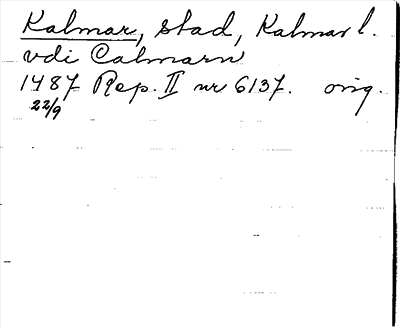 Kalmar, stad, Kalmar l.
vdi Calmarn
1487 Rep. II nr 6137. orig.
22/9